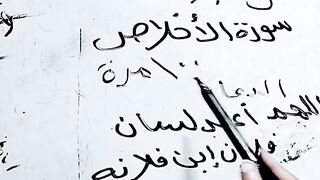 سورة الأخلاص
١٠٠ مرة
الدعاء
اللهم أعقد لسان
فلان إبن فلانه